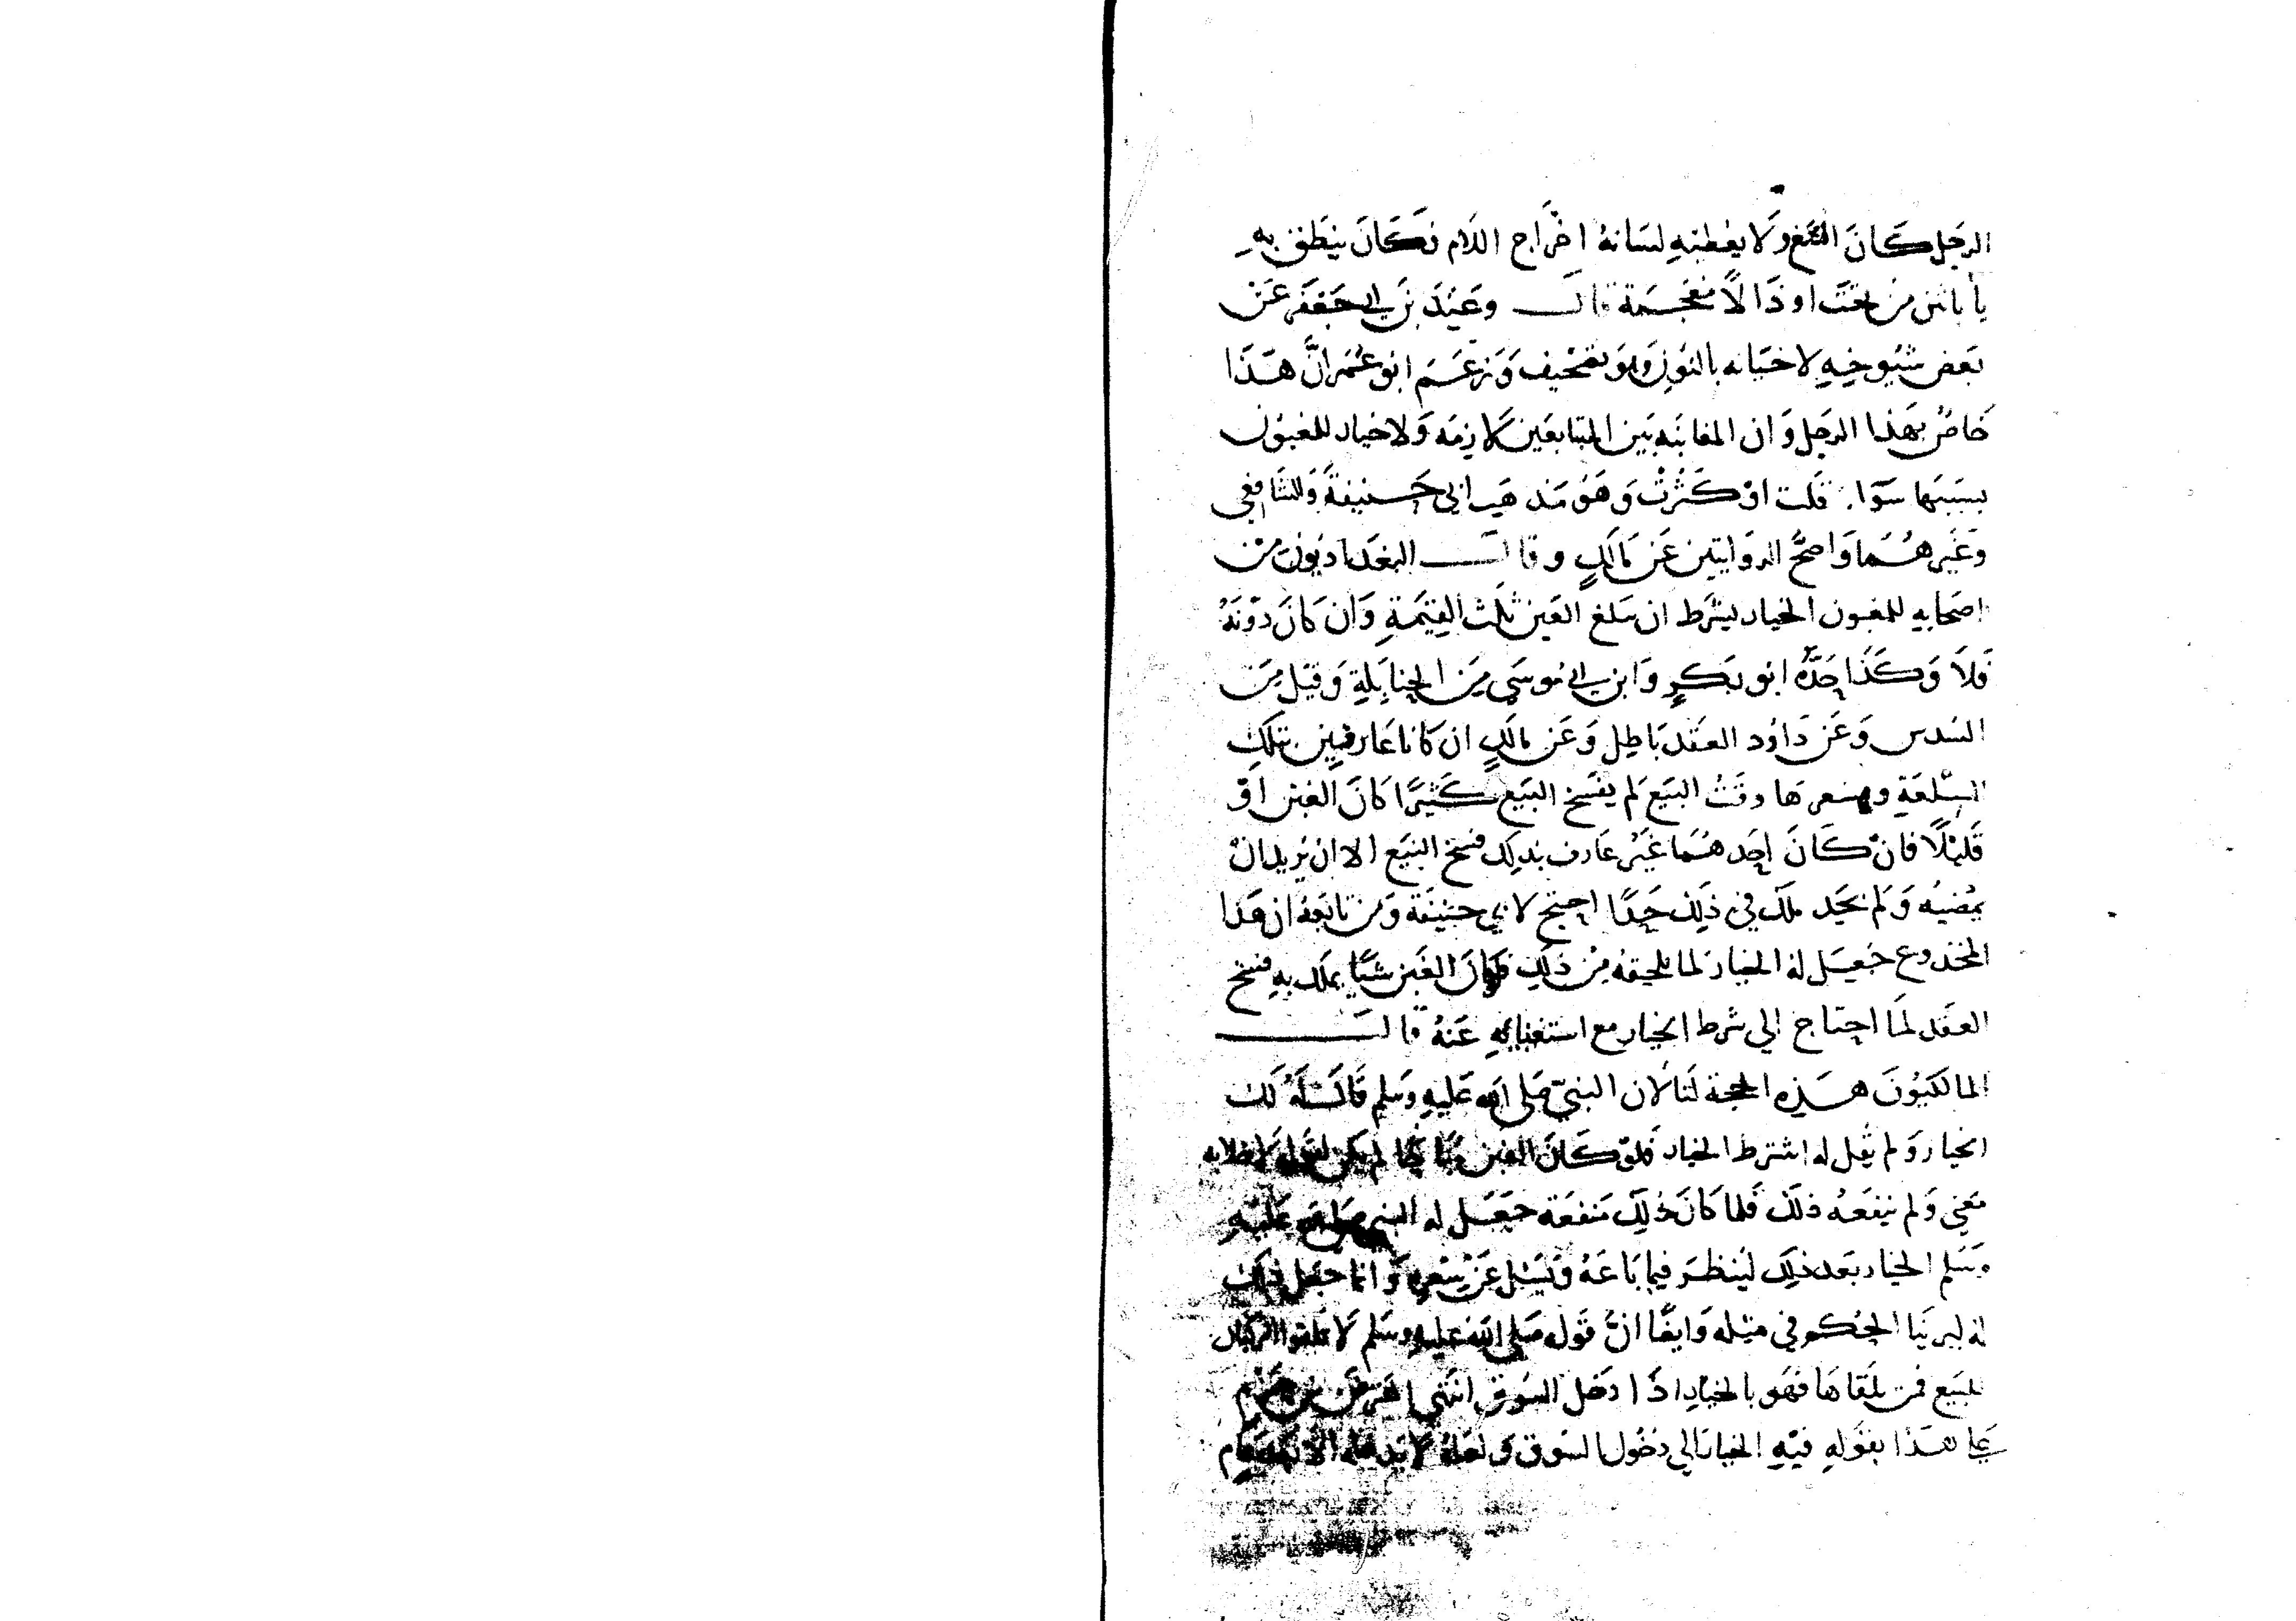 الرجل كان الثغ ولا يعطيه لسانه اخراج اللام فكان ينطق به
يا باثنين من تحت او ذالا معجمة قال وعند بن ابي جعفر عن
بعض شيوخه لا خيانه بالنون وهو تصحيف وزعم ابو عمر ان هذا
خاص بهذا الرجل وان المغابنه بين المتبايعين لازمه ولا خيار للمغبون
بسببها سوآء قلت او كثرت وهو مذهب ابي حنيفة والشافعي
وغيرهما واصح الروايتين عن مالك وقال البغداديون من
اصحابه للمغبون الخيار بشرط ان يبلغ الغبن ثلث القيمة وان كان دونه
فلا وكذا حده ابو بكر وابن ابي موسى من الحنابلة وقيل من
السدس وعن داود العقد باطل وعن مالك ان كانا عارفين بتلك
السلعة وبسعرها وقت البيع لم يفسخ البيع كثيرا كان الغبن او
قليلا فان كان احدهما غير عارف بذلك فسخ البيع الا ان يريد ان
يمضيه ولم يحد ملك في ذلك حدا احتج لابي حنيفة ومن تابعه ان هذا
المخدوع جعل له الخيار لما يلحقه من ذلك فلو كان الغبن شيا يملك به فسخ
العقد لما احتاج الي شرط الخيار مع استغنايه عنه قال
المالكيون هذه الحجة لنا لان النبي صلى الله عليه وسلم قال له لك
الخيار ولم يقل له اشترط الخيار فلو كان الغبن لم يكن لقوله لا خلابه
معني ولم ينفعه ذلك فلما كان ذلك منفعة جعل له النبي صلى الله عليه
وسلم الخيار بعد ذلك لينظر فيما باعه ويسل عن سعره وانما جعل ذلك
له ليرينا الحكم في مثله وايضا ان قوله صلى الله عليه وسلم لا تلقوا الركبان
للبيع فمن يلقاها فهو بالخيار اذا دخل السوق انتهي
علي هذا بقوله فيه الخيار الي دخول السوق ولعله لا يدخله الا